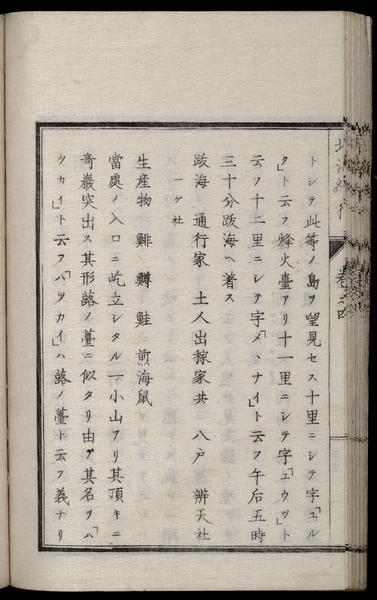 トシテ此等ノ島ヲ望見セス十里ニシテ字「エル
ク」ト云フ烽火臺アリ十一里ニシテ字「ユウツ」ト
云フ十二里ニシテ字「メヽナイ」ト云フ午后五時
三十分歧海ヘ着ス
歧海 通行家 土人出稼家共 八戸 辨天社
一ケ社
生産物 鯡 鱒 鮭 煎海鼠
當處ノ入口ニ屹立シタル一小山アリ其頂キニ
奇巖突出ス其形蕗ノ薹ニ似タリ由テ其名ヲ「ハ
ツカイ」ト云フ「ハツカイ」ハ蕗ノ薹ト云フ義ナリ
卷之四